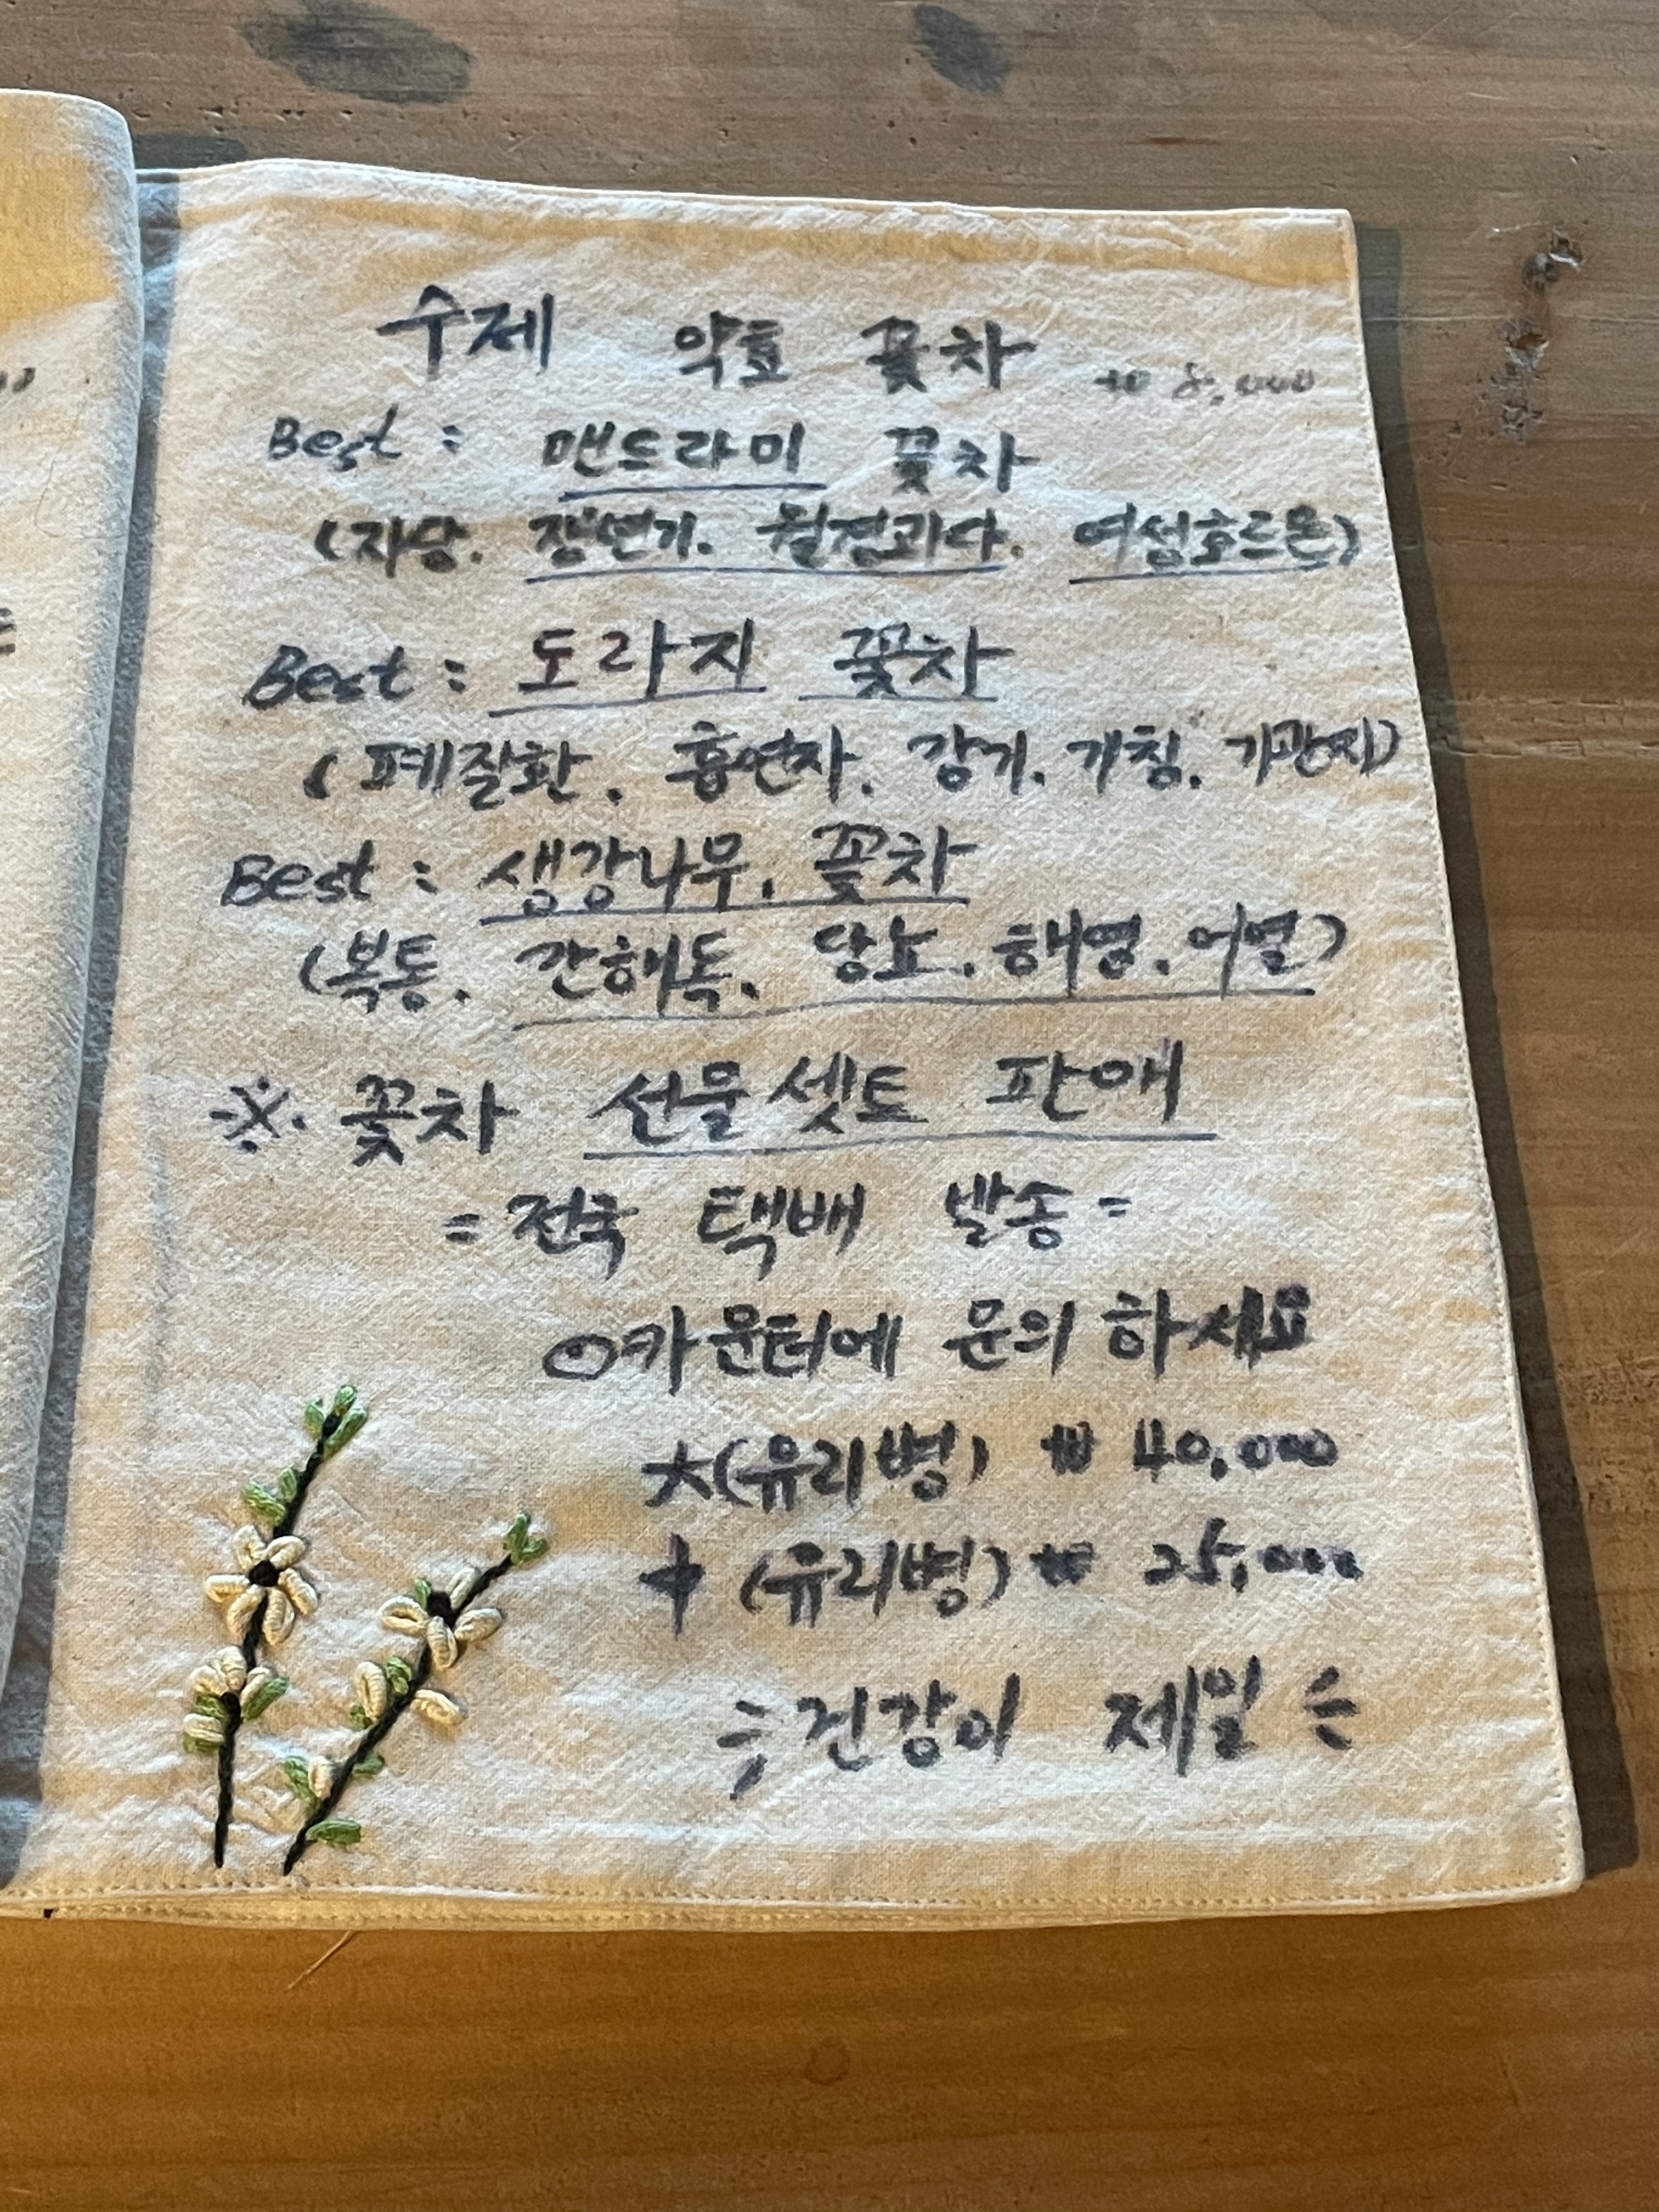 수제 약효 꽃차 ₩ 8,000
Best : 맨드라미 꽃차
(자당. 갱년기. 월경과다. 여성호르몬)
Best : 도라지 꽃차
(폐질환. 흡연자. 감기. 기침. 기관지)
Best : 생강나무. 꽃차
(복통. 간해독. 당뇨. 해열. 어혈)
※ 꽃차 선물셋트 판매
= 전국 택배 발송 =
⊙카운터에 문의 하세요
大(유리병) ₩ 40,000
小(유리병) ₩ 25,000
건강이 제일